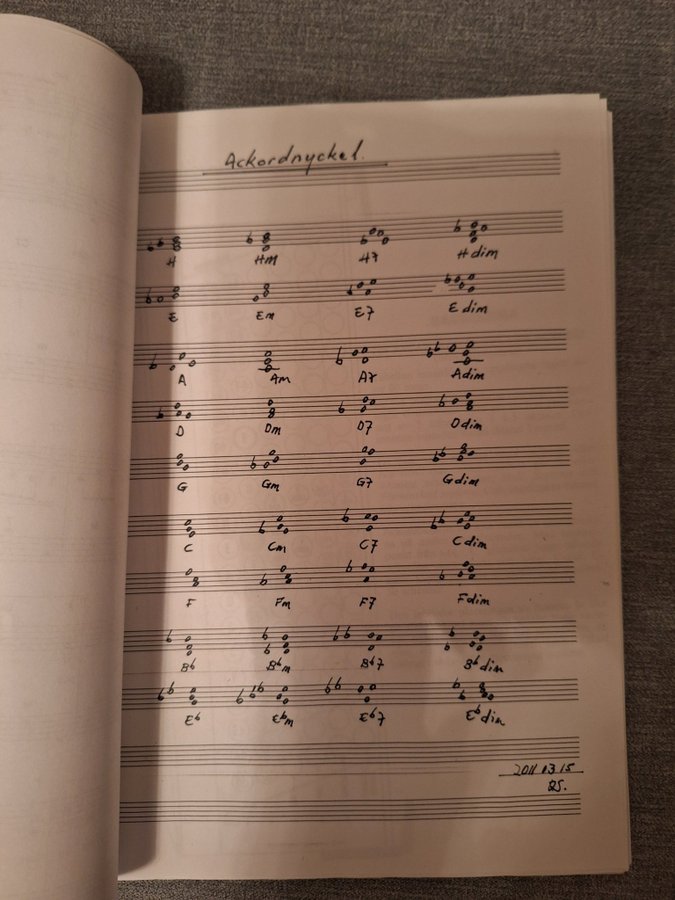 Ackordnyckel.
H Hm H7 Hdim
E Em E7 Edim
A Am A7 Adim
D Dm D7 Ddim
G Gm G7 Gdim
C Cm C7 Cdim
F Fm F7 Fdim
B♭ B♭m B♭7 B♭dim
E♭ E♭m E♭7 E♭dim
2011 03 15